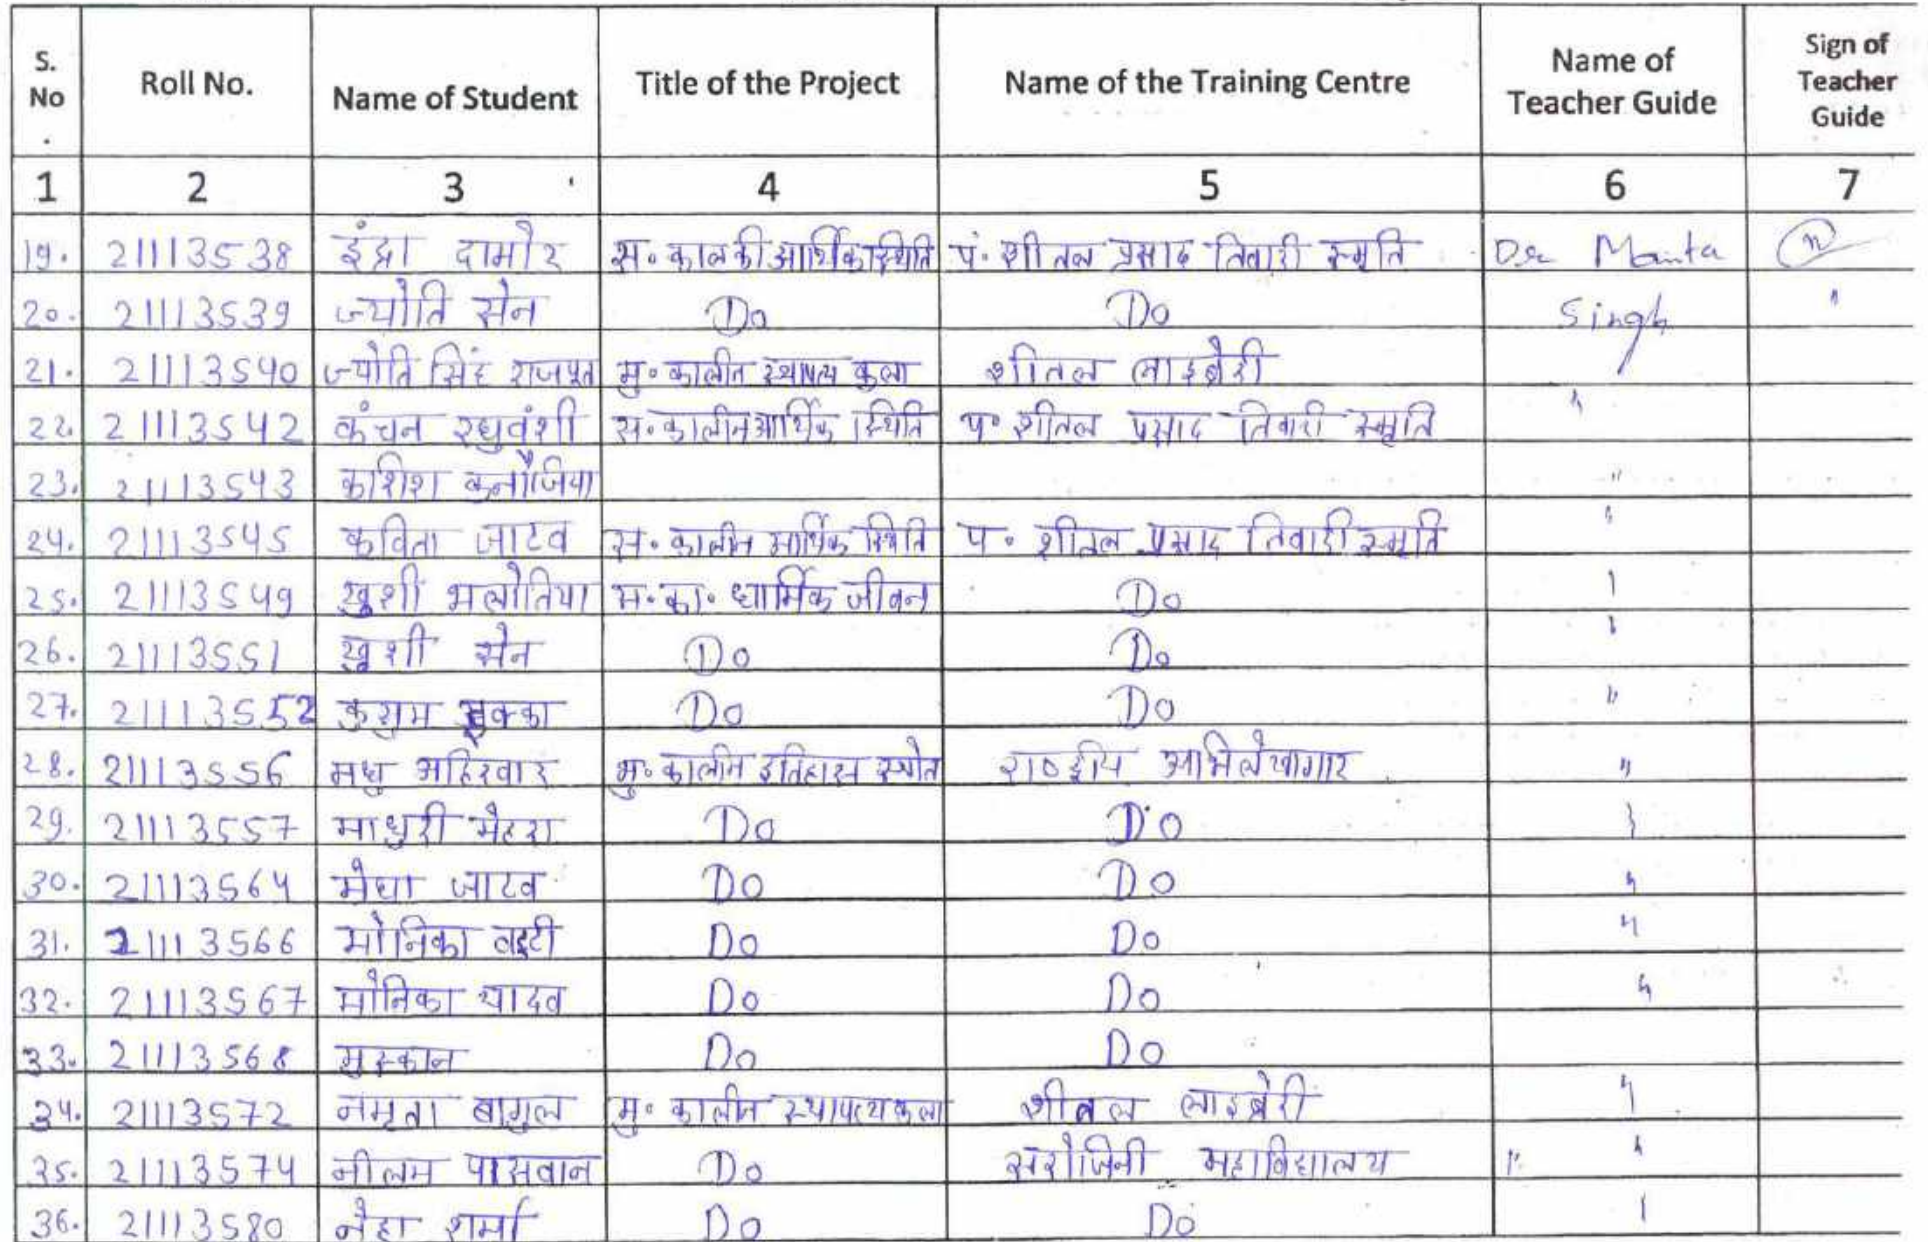 S. No. Roll No. Name of Student Title of the Project Name of the Training Centre Name of Teacher Guide Sign of Teacher Guide
1 2 3 4 5 6 7
19. 21113538 इंद्रा दामोर स॰ काल की आर्थिक स्थिति पं॰ शीतल प्रसाद तिवारी स्मृति Dr Manta
20. 21113539 ज्योति सेन Do Do Singh "
21. 21113540 ज्योति सिंह राजपूत मु॰ कालीन स्थापत्य कला शीतल लाइब्रेरी
22. 21113542 कंचन रघुवंशी स॰ कालीन आर्थिक स्थिति प॰ शीतल प्रसाद तिवारी स्मृति "
23. 21113543 कशिश कनौजिया "
24. 21113545 कविता जाटव स॰ कालीन आर्थिक स्थिति प॰ शीतल प्रसाद तिवारी स्मृति "
25. 21113549 खुशी भलोतिया स॰ का॰ धार्मिक जीवन Do "
26. 21113551 खुशी सेन Do Do "
27. 21113552 कुसुम Do Do "
28. 21113556 मधु अहिरवार मु॰ कालीन इतिहास स्त्रोत राष्ट्रीय अभिलेखागार "
29. 21113557 माधुरी मेहरा Do Do "
30. 21113564 मेघा जाटव Do Do "
31. 21113566 मोनिका Do Do "
32. 21113567 मोनिका यादव Do Do "
33. 21113568 मुस्कान Do Do
34. 21113572 नमृता बागुल मु॰ कालीन स्थापत्य कला शीतल लाइब्रेरी "
35. 21113574 नीलम पासवान Do सरोजिनी महाविद्यालय " "
36. 21113580 नेहा शर्मा Do Do "